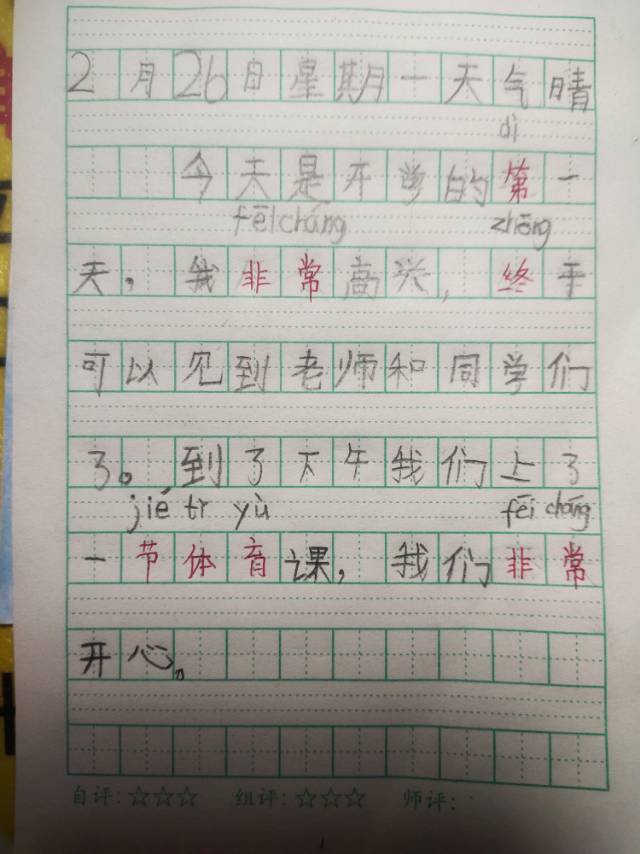 2月26日星期一天气晴
dì
今天是开学的第一
fēi cháng zhōng
天，我非常高兴，终于
可以见到老师和同学们
了。到了下午我们上了
jié tǐ yù fēi cháng
一节体育课，我们非常
开心。
自评：☆☆☆ 组评：☆☆☆ 师评：